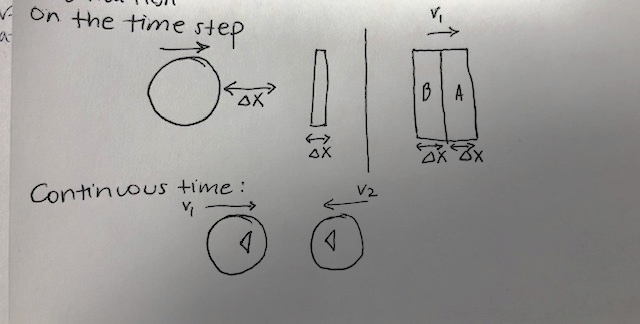 on the time step
v₁
Δx
B A
Δx
Δx Δx
Continuous time:
v₁
v₂